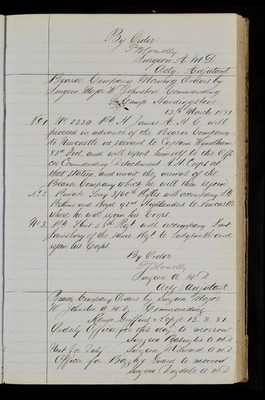 By Order
Surgeon A M D
Actg. Adjutant
Bearer Company Morning Orders by
Surgeon Major W Johnston Commanding
Camp
13th March 1881
No 1. No 2220 Pte H. James A.H.C. will
proceed in advance of the Bearer Company
to Newcastle as servant to Captain
58th Foot and will report himself to the Offi
cer Commanding Detachment A.H. Corps at
that station and await the arrival of the
Bearer Company which he will then rejoin
No 2. Private 3/60th Rifles will accompany the
92nd Highlanders to Newcastle
where he will rejoin his Corps
No 3. Pte 58th Regt will accompany Lieut
of the same Regt to Ladysmith and
rejoin his Corps
By Order
Surgeon A. M. D
Actg Adjutant
Bearer Company Orders by Surgeon Major
W Johnston A M D Commanding
Camp 13. 3. 81
Orderly Officer for the day to morrow
Surgeon A M D
Next for Duty Surgeon A M D
Officer for Guard to morrow
Surgeon A M D